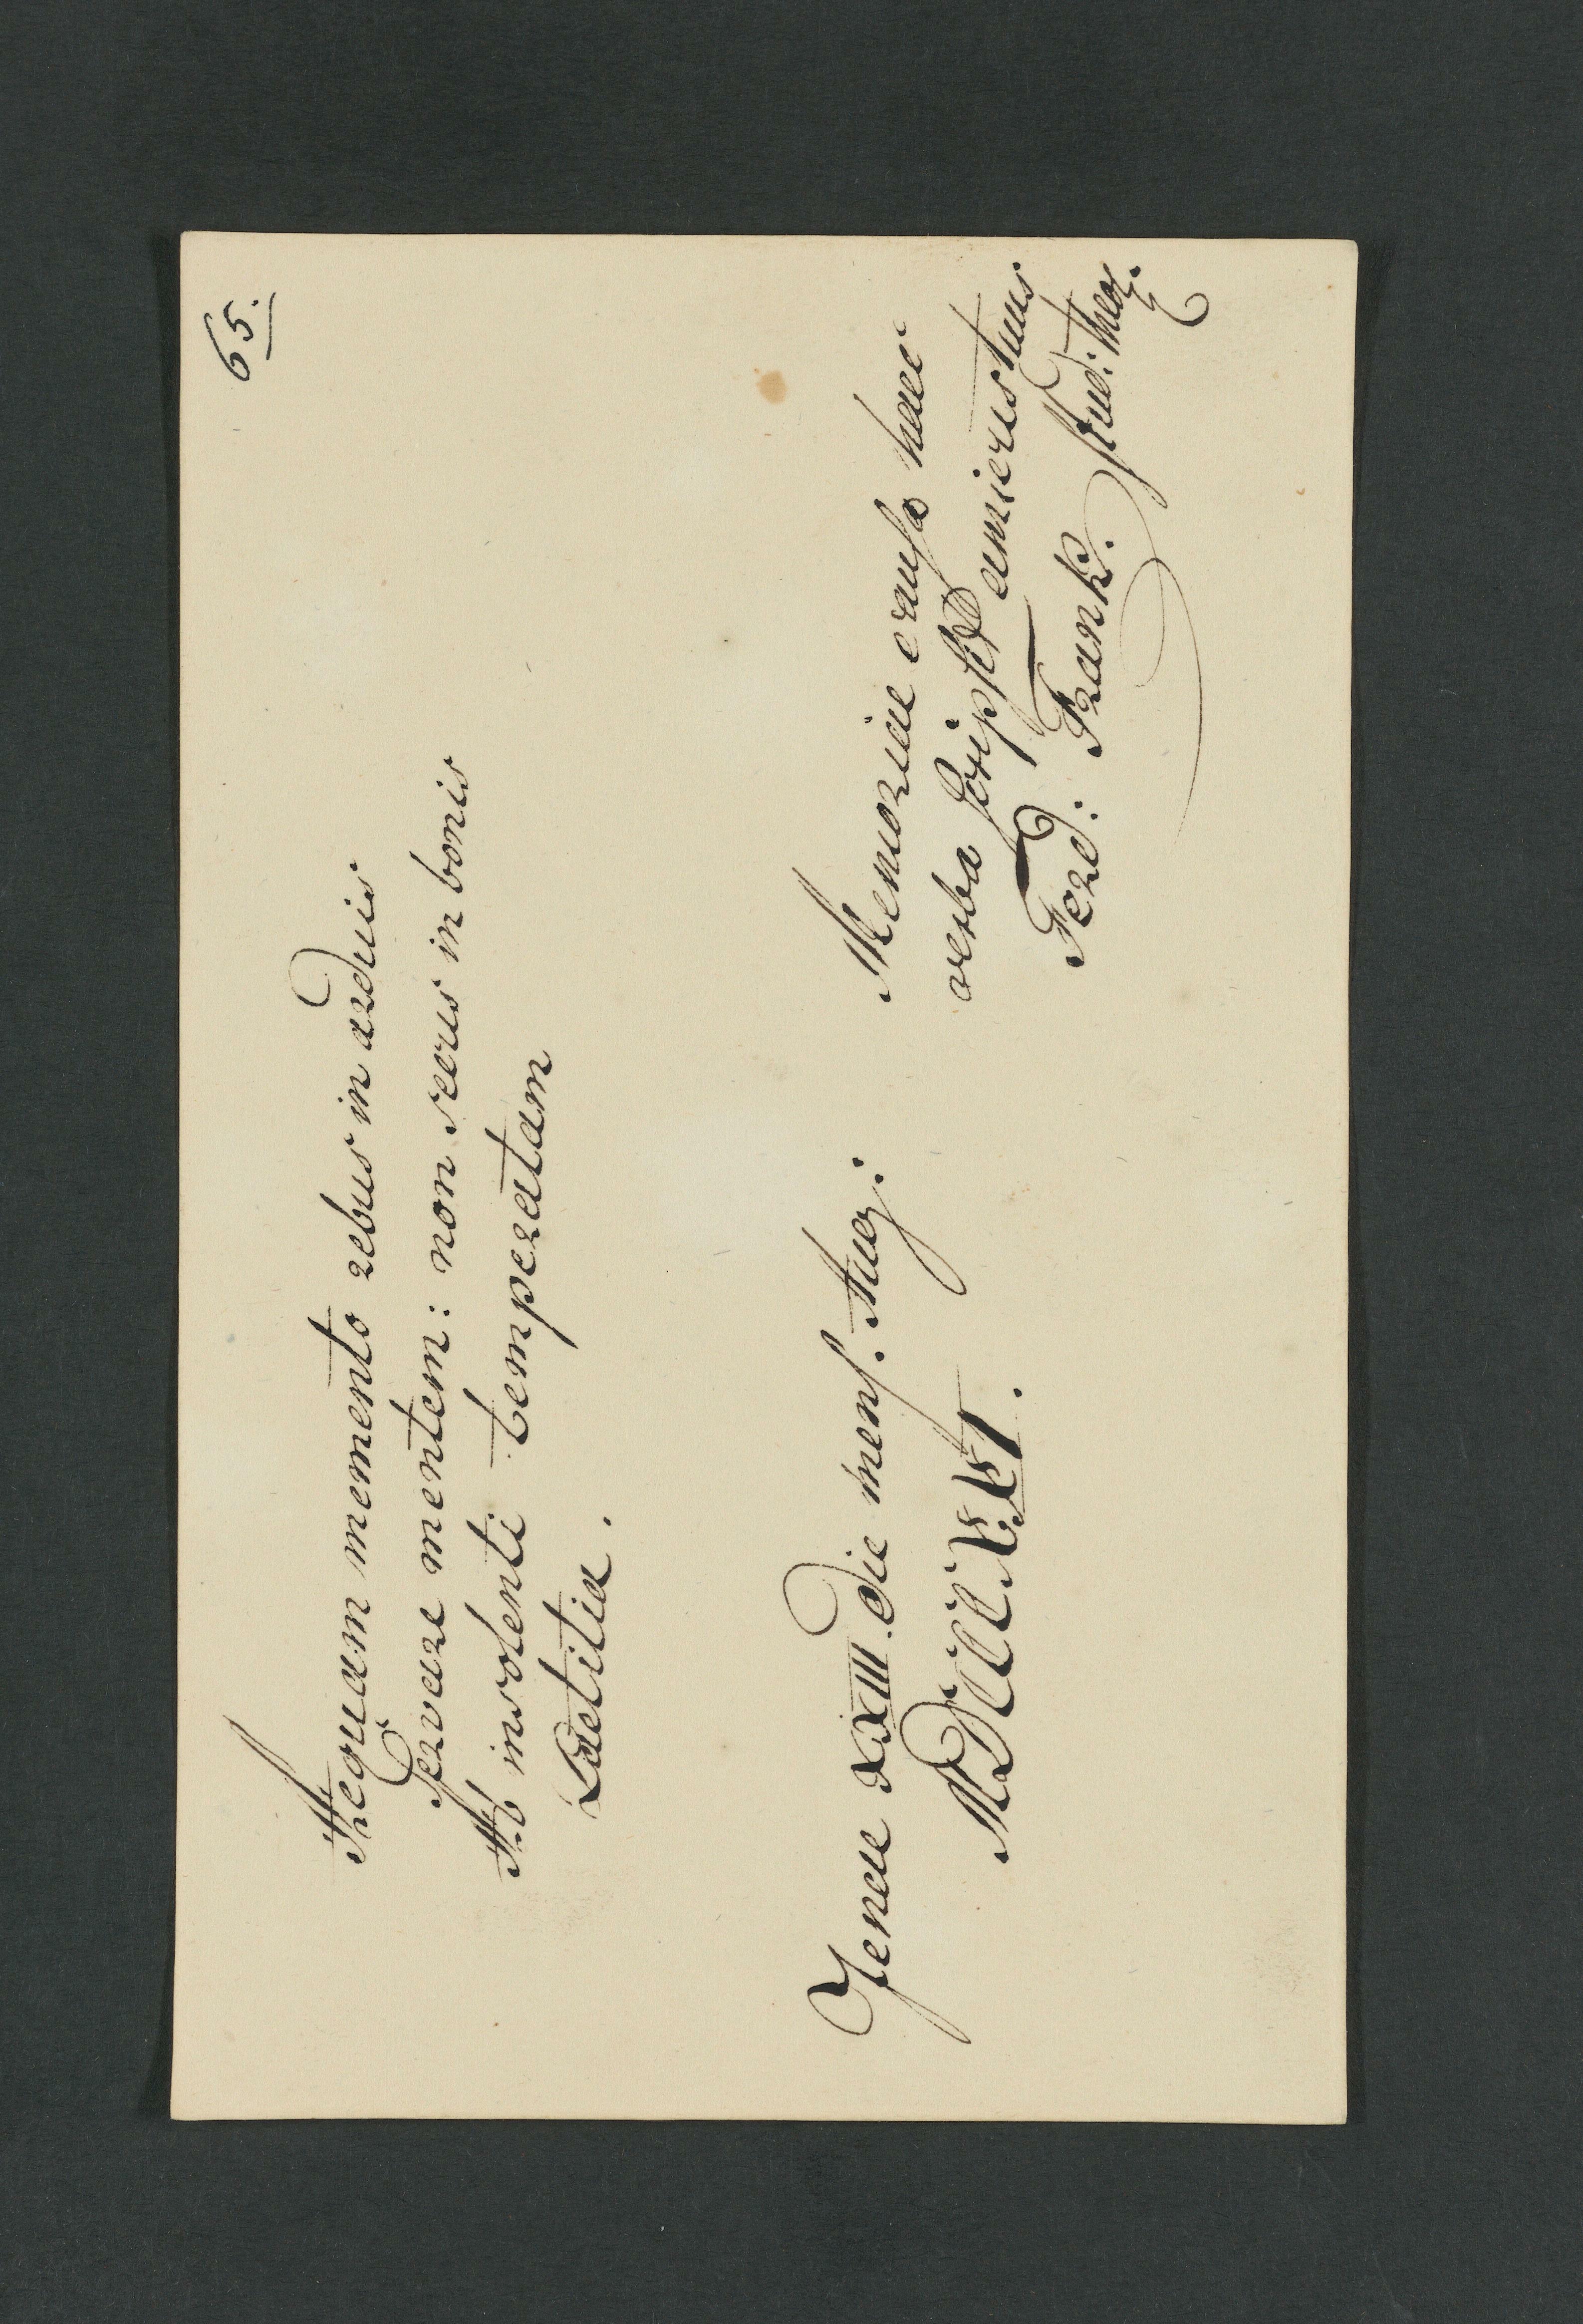 65.
Aequam memento rebus in arduis
Servare mentem: non secus in bonis
Ab insolenti temperatam
Laetitia.
Jenae XXIII. die mens. Aug:
MDCCCXXI.
Memoriae causa haec
verba scripsit amicus tuus
Ferd: Frank. stud: theol.